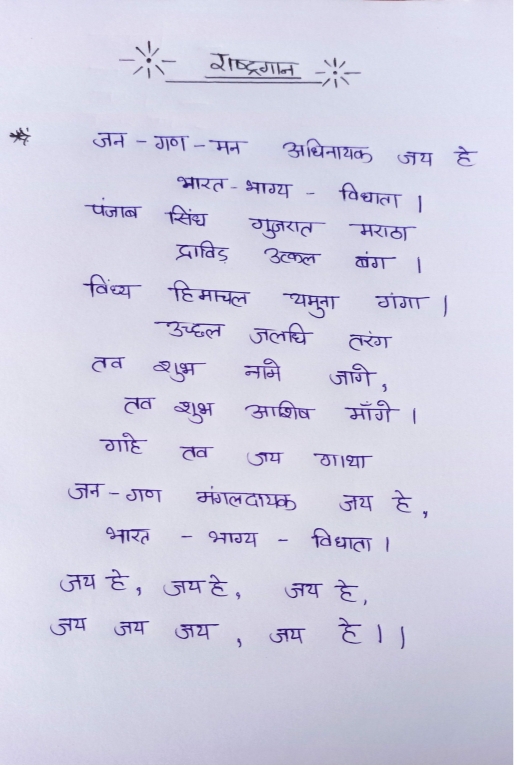 राष्ट्रगान
जन - गण - मन अधिनायक जय हे
भारत - भाग्य - विधाता ।
पंजाब सिंध गुजरात मराठा
द्राविड़ उत्कल बंग ।
विंध्य हिमाचल यमुना गंगा ।
उच्छल जलधि तरंग
तव शुभ नामे जागे,
तव शुभ आशिष माँगे ।
गाहे तव जय गाथा
जन - गण मंगलदायक जय हे,
भारत - भाग्य - विधाता ।
जय हे, जय हे, जय हे,
जय जय जय , जय हे ।।